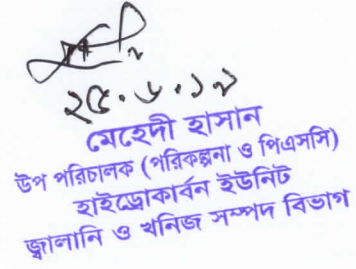 ২৫.৬.১৯
মেহেদী হাসান
উপ পরিচালক (পরিকল্পনা ও পিএসসি)
হাইড্রোকার্বন ইউনিট
জ্বালানি ও খনিজ সম্পদ বিভাগ